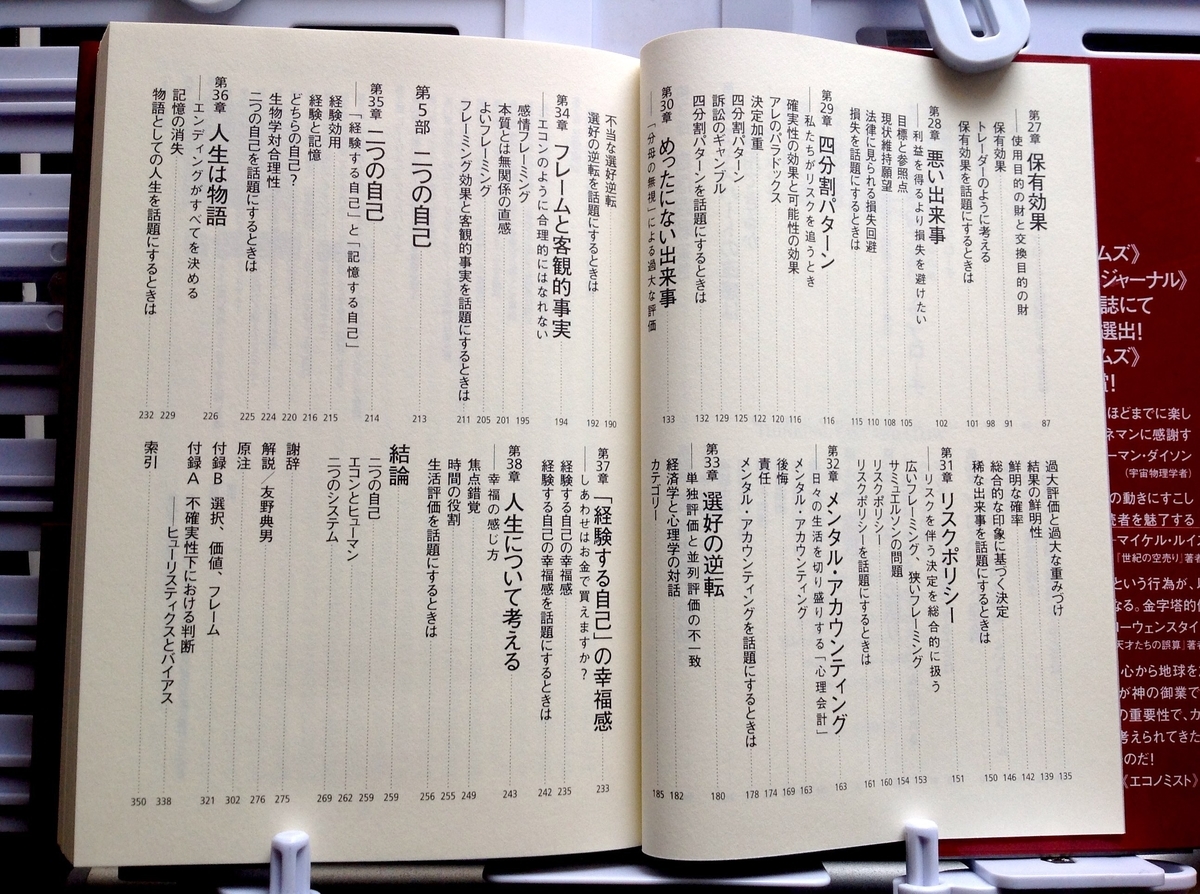 第27章 保有効果 87
――使用目的の財と交換目的の財
保有効果 91
トレーダーのように考える 98
保有効果を話題にするときは 101
第28章 悪い出来事 102
――利益を得るより損失を避けたい
目標と参照点 105
現状維持願望 108
法律に見られる損失回避 110
損失を話題にするときは 115
第29章 四分割パターン 116
――私たちがリスクを追うとき
確実性の効果と可能性の効果 116
アレのパラドックス 120
決定加重 122
四分割パターン 125
訴訟のギャンブル 129
四分割パターンを話題にするときは 132
第30章 めったにない出来事 133
――「分母の無視」による過大な評価
過大評価と過大な重みづけ 135
結果の鮮明性 139
鮮明な確率 142
総合的な印象に基づく決定 146
稀な出来事を話題にするときは 150
第31章 リスクポリシー 151
――リスクを伴う決定を総合的に扱う
広いフレーミング、狭いフレーミング 153
サミュエルソンの問題 154
リスクポリシー 160
リスクポリシーを話題にするときは 161
第32章 メンタル・アカウンティング 163
――日々の生活を切り盛りする「心理会計」
メンタル・アカウンティング 163
後悔 169
責任 174
メンタル・アカウンティングを話題にするときは 178
第33章 選好の逆転 180
――単独評価と並列評価の不一致
経済学と心理学の対話 182
カテゴリー 185
不当な選好逆転 190
選好の逆転を話題にするときは 192
第34章 フレームと客観的事実 194
――エコンのように合理的にはなれない
感情フレーミング 195
本質とは無関係の直感 201
よいフレーミング 205
フレーミング効果と客観的事実を話題にするときは 211
第5部 二つの自己 213
第35章 二つの自己 214
――「経験する自己」と「記憶する自己」
経験効用 215
経験と記憶 216
どちらの自己? 220
生物学対合理性 224
二つの自己を話題にするときは 225
第36章 人生は物語 226
――エンディングがすべてを決める
記憶の消失 229
物語としての人生を話題にするときは 232
第37章 「経験する自己」の幸福感 233
――しあわせはお金で買えますか?
経験する自己の幸福感 235
経験する自己の幸福感を話題にするときは 242
第38章 人生について考える 243
――幸福の感じ方
焦点錯覚 249
時間の役割 255
生活評価を話題にするときは 256
結論 259
二つの自己 259
エコンとヒューマン 262
二つのシステム 269
謝辞 275
解説/友野典男 276
原注 302
付録B 選択、価値、フレーム 321
付録A 不確実性下における判断
――ヒューリスティクスとバイアス 338
索引 350
ムズ》
ジャーナル》
誌にて
選出!
ムズ》
賞!
ほどまでに楽し
ネマンに感謝す
ーマン・ダイソン
(宇宙物理学者)
の動きにすこし
読者を魅了する
ーマイケル・ルイス
『世紀の空売り』著者
という行為が、
なる。金字塔的
ローウェンスタイ
天才たちの誤算』著者
心から地球を
が神の御業で
の重要性で、
考えられてきた
のだ!
《エコノミスト》